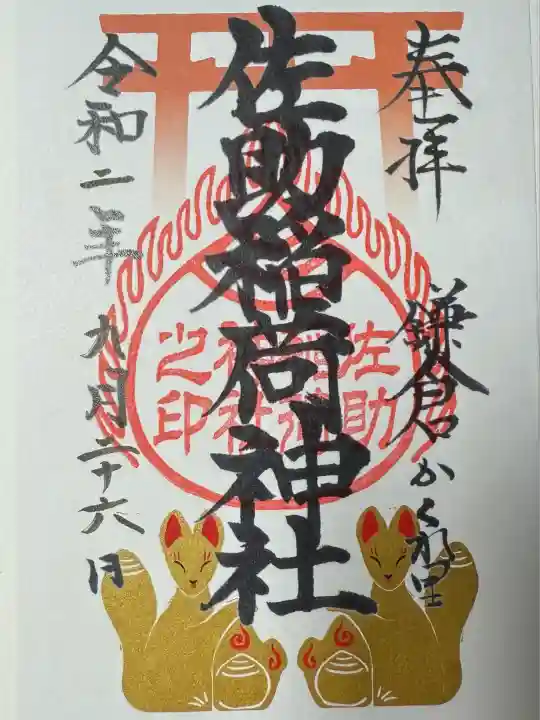 奉拝
鎌倉かくれ里
佐助稲荷神社
佐助稲荷神社之印
令和二年
九月二十六日